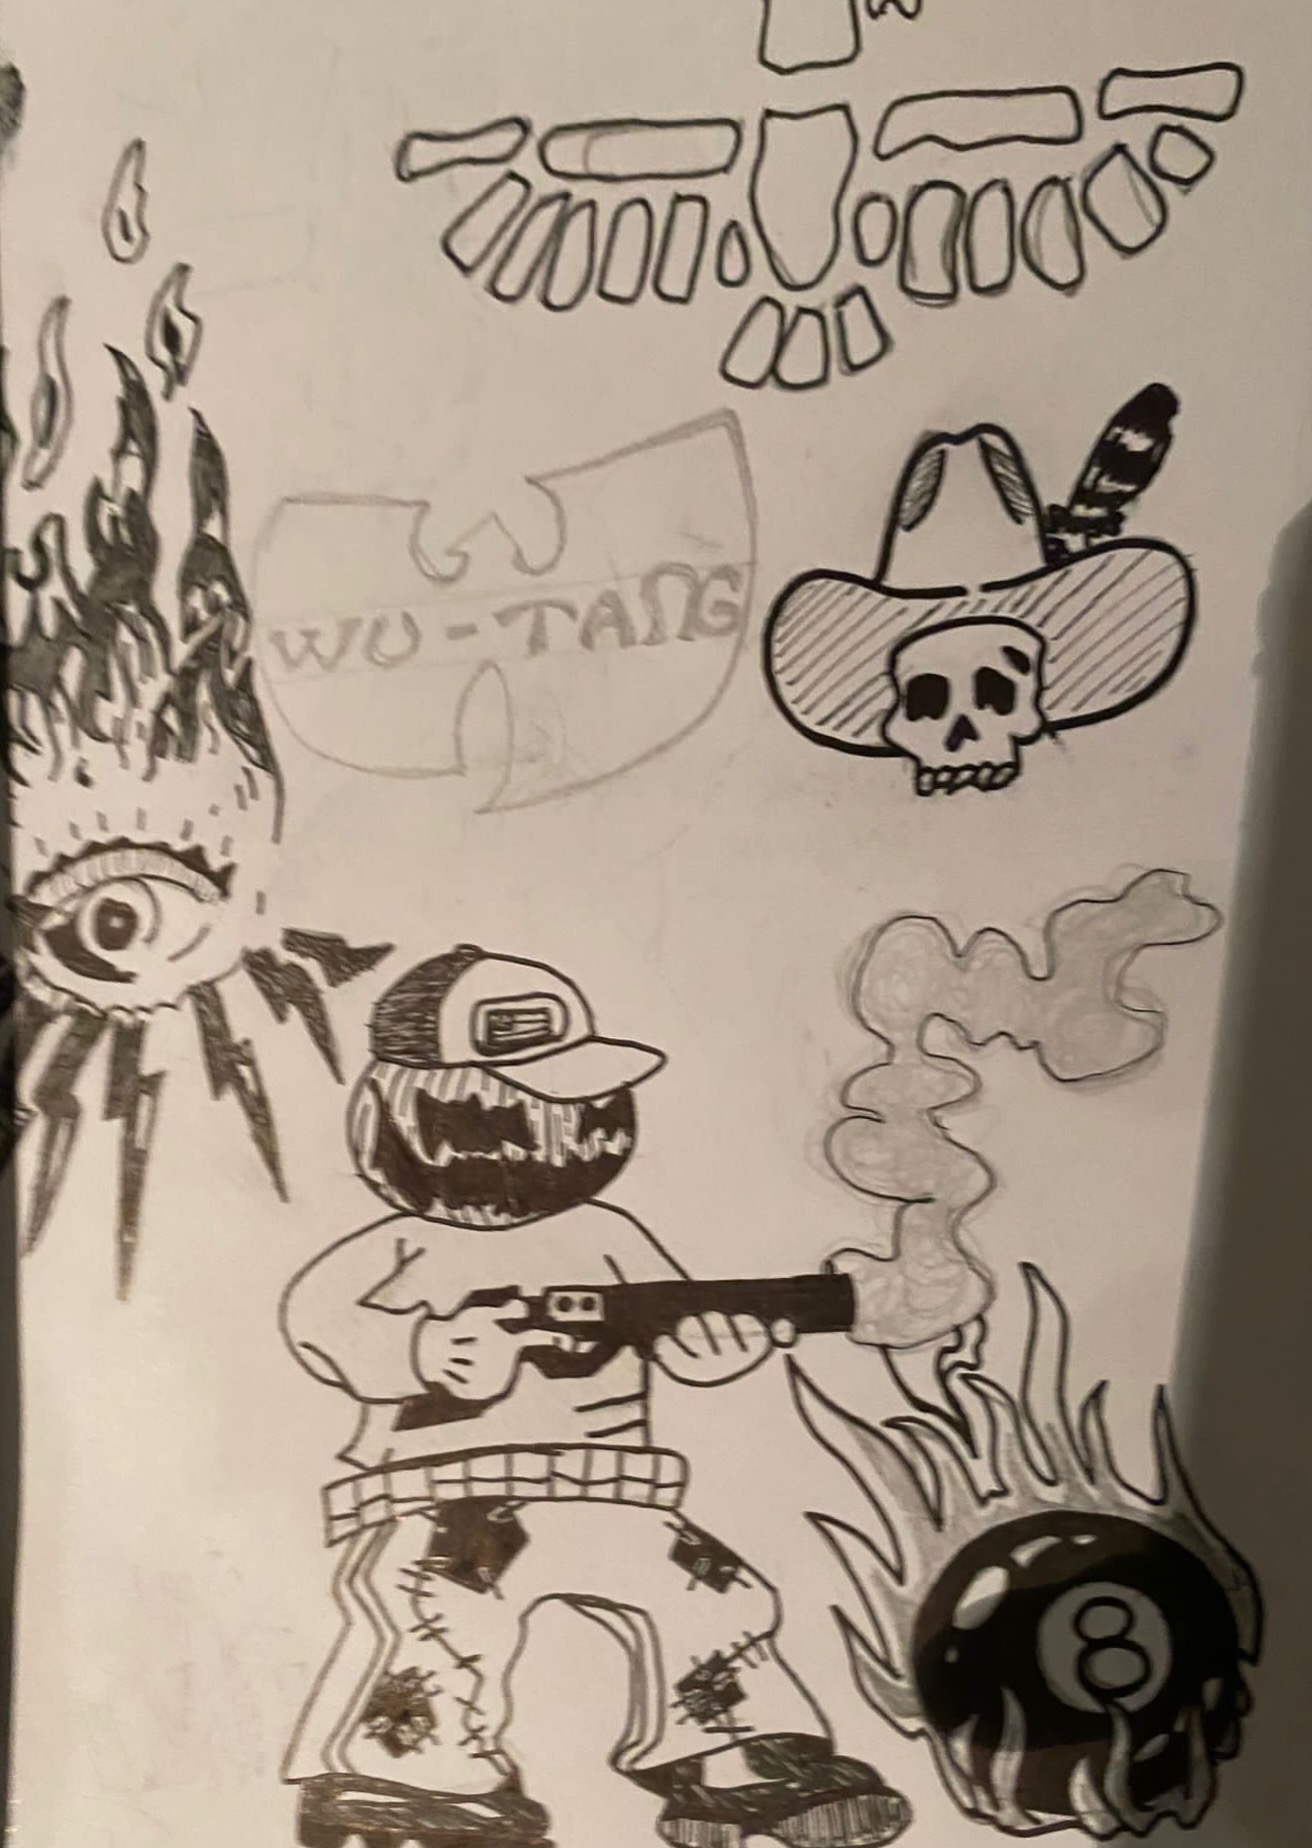 WU-TANG
8